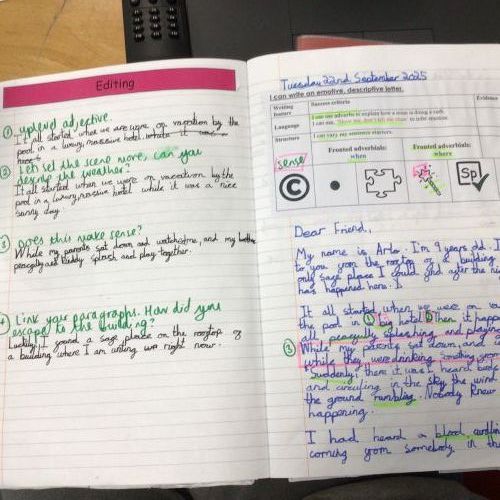 Editing
① uplevel adjective.
It all started when we were on vacation by the
pool in a luxury, massive hotel.
② Let's set the scene more, can you
describe the weather?
It all started when we were on vacation by the
pool in a luxury, massive hotel while it was a nice
sunny day.
③ Does this make sense?
While my parents sat down and watched me, and my
peacefully splash and play together.
④ Link your paragraphs. How did you
escape to the building?
Luckily, I found a safe place on the rooftop of
a building where I am writing right now.
Tuesday 22nd September 2025
I can write an emotive, descriptive letter.
Writing feature
Success criteria
Evidence
Language
I can use adverbs to explain how a man is doing a verb.
I can use to infer emotion.
Structure
I can vary my sentence starters.
sense
Fronted adverbials:
when
Fronted adverbials:
where
Sp
Dear Friend,
My name is Arlo. I'm 9 years old. I
to you from the rooftop of a building
only safe place I could find after the
has happened here. I
It all started when we were on
the pool in ① big hotel. ② Then it happ
all peacefully splashing and playing
③ While my parents sat down, and
while they were drinking something
Suddenly, there it was I heard birds
and circling in the sky the wind
the ground rumbling. Nobody knew
happening.
I had heard a blood curdlin
coming from somebody in the